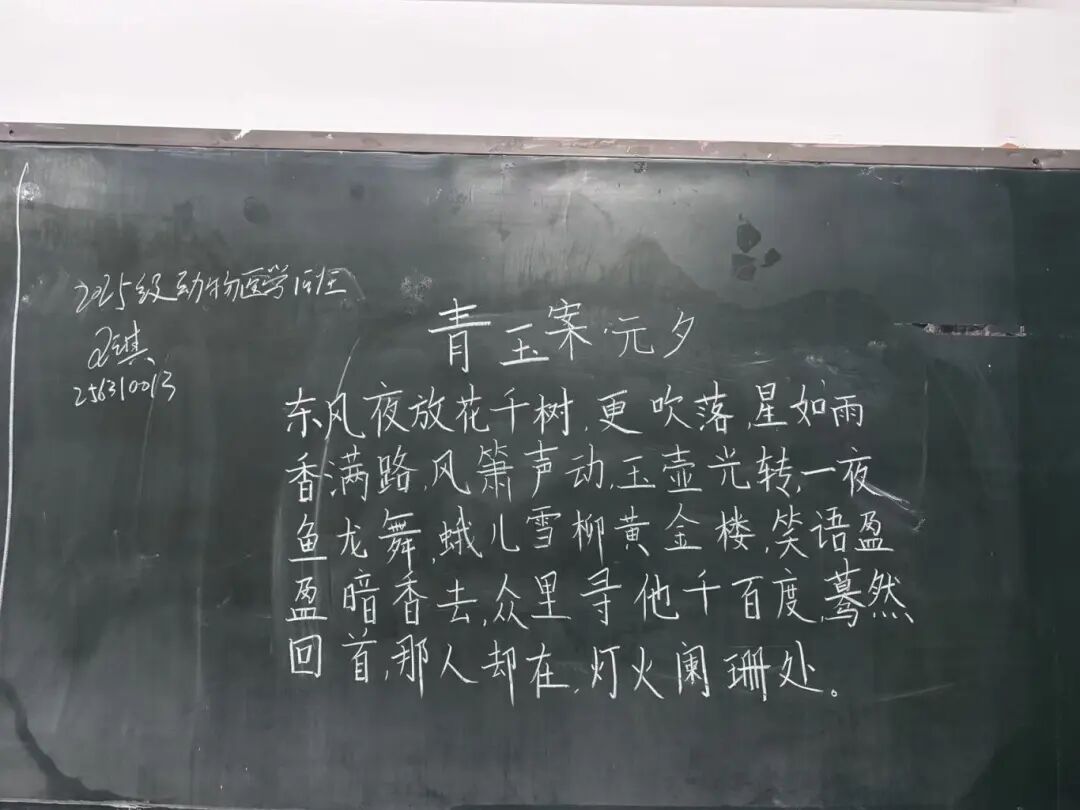 2025级动物医学1班
琪
256310013
青玉案·元夕
东风夜放花千树,更吹落,星如雨
香满路,风箫声动,玉壶光转,一夜
鱼龙舞,蛾儿雪柳黄金楼,笑语盈
盈暗香去,众里寻他千百度,蓦然
回首,那人却在,灯火阑珊处。